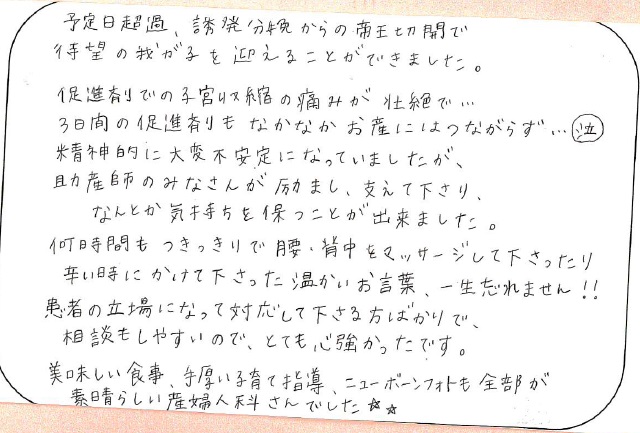 予定日超過、誘発分娩からの帝王切開で
待望の我が子を迎えることができました。
促進剤での子宮収縮の痛みが壮絶で…
3日間の促進剤もなかなかお産にはつながらず…泣
精神的に大変不安定になっていましたが、
助産師のみなさんが励まし、支えて下さり、
なんとか気持ちを保つことが出来ました。
何時間もつきっきりで腰・背中をマッサージして下さったり
辛い時にかけて下さった温かいお言葉、一生忘れません!!
患者の立場になって対応して下さる方ばかりで、
相談もしやすいので、とても心強かったです。
美味しい食事、手厚い子育て指導、ニューボーンフォトも全部が
素晴らしい産婦人科さんでした☆☆